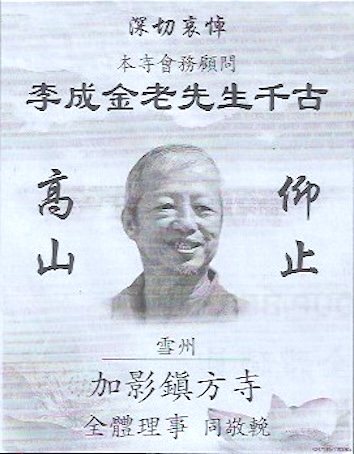 深切哀悼
本寺會務顧問
李成金老先生千古
高山
仰止
雪州
加影鎮方寺
全體理事 同敬輓